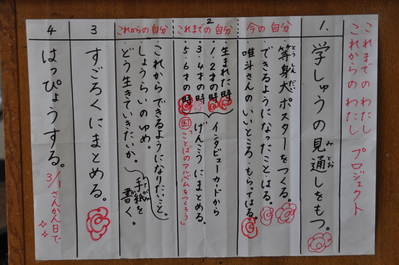 これまでのわたし
これからのわたし プロジェクト
1. 学しゅうの見通しをもつ。
みとお
今の自分
等身大ポスターをつくる。
とうしんだい
できるようになったことはる。
唯斗さんのいいところ もらってはる。
2
これまでの自分
・生まれた時
・1・2才の時
・3・4才の時
・5・6才の時
インタビューカードから
げんこうにまとめる。
「ことばのアルバムをつくろう」
これからの自分
・これからできるようになりたいこと。
・しょうらいのゆめ。
・どう生きていきたいか。
手紙を
書く。
3 すごろくにまとめる。
4 はっぴょうする。
3/1 さんかん日で